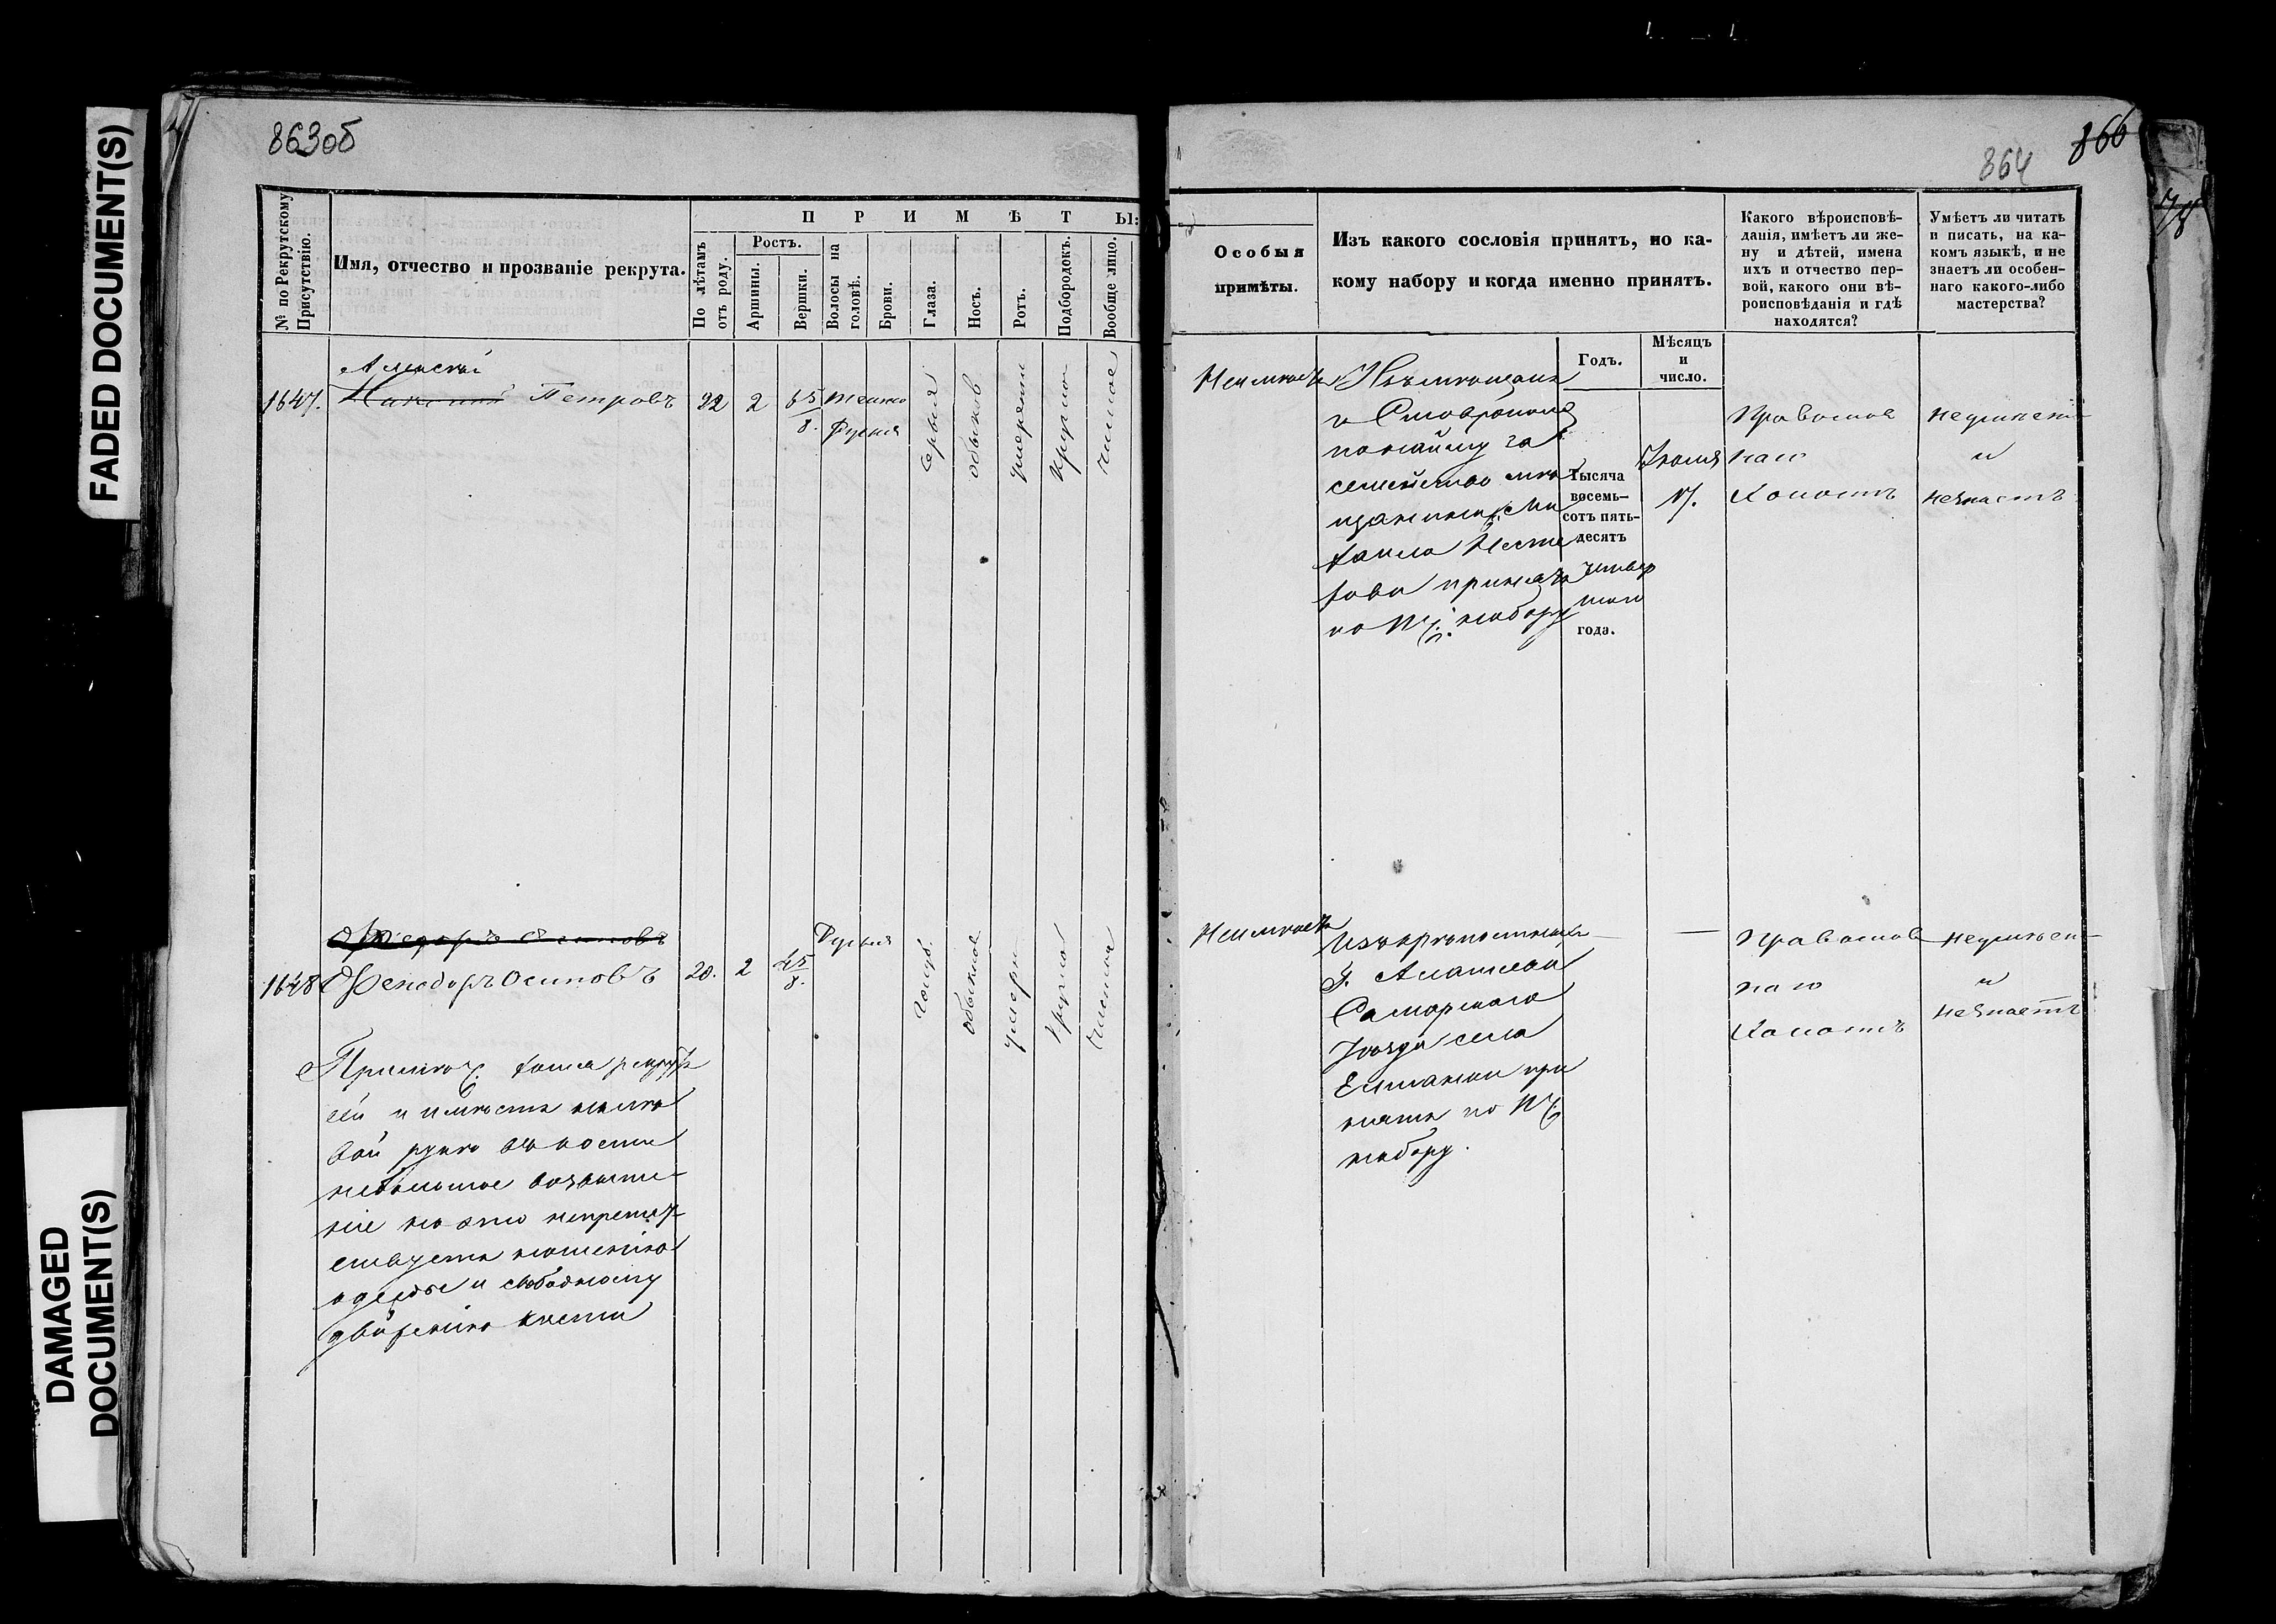 FADED DOCUMENT(S)
DAMAGED
DOCUMENT(S)
863об
№ по Рекрутскому
Присутствію.
Имя, отчество и прозваніе рекрута.
П Р И М Ѣ Т Ы:
По лѣтамъ
отъ роду.
Ростъ.
Аршины.
Вершки.
Волосы на
головѣ.
Брови.
Глаза.
Носъ.
Ротъ.
Подбородокъ.
Вообще лицо.
Алексѣй
1647. Петровъ 22 2 6 5/8. Темно
Русыя
Серыя
обыкнов
умеренн
круглой
чистое
1648 Осиповъ 20. 2 4 5/8. Русыя
голуб.
обыкнов
умерен
круглой
чистое
Примѣч. у сего рекрута
на лѣ
вой рукѣ въ кости
небольшое возвыше
ніе но это непрепят
ствуетъ ношенію
одежды и свободному
движенію кисти
864
866
78
Особыя
примѣты.
Изъ какого сословія принятъ, по ка-
кому набору и когда именно принятъ.
Какого вѣроисповѣ-
данія, имѣетъ ли же-
ну и дѣтей, имена
ихъ и отчество пер-
вой, какого они вѣ-
роисповѣданія и гдѣ
находятся?
Умѣетъ ли читать
и писать, на ка-
комъ языкѣ, и не
знаетъ ли особен-
наго какого-либо
мастерства?
Годъ.
Мѣсяцъ
и
число.
Неимѣетъ
Изъ мѣщанъ
г. Ставрополя
по найму за
семейство мѣ
щанина Ми
хаила Несте
рова принятъ
по набору
Тысяча
восемь-
сотъ пять-
десятъ
четвер
таго
года.
17.
Православ
наго
Холостъ
Неумѣетъ
и
незнаетъ
Неимѣетъ
Изъ крѣпостныхъ
Г.
Самарскаго
Уѣзда села
при
нятъ по
набору.
Православ
наго
Холостъ
Неумѣетъ
и
незнаетъ